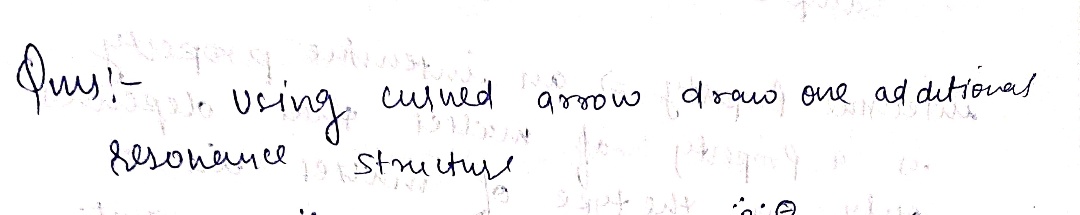 Ques:- Using curved arrow draw one additional
resonance structure